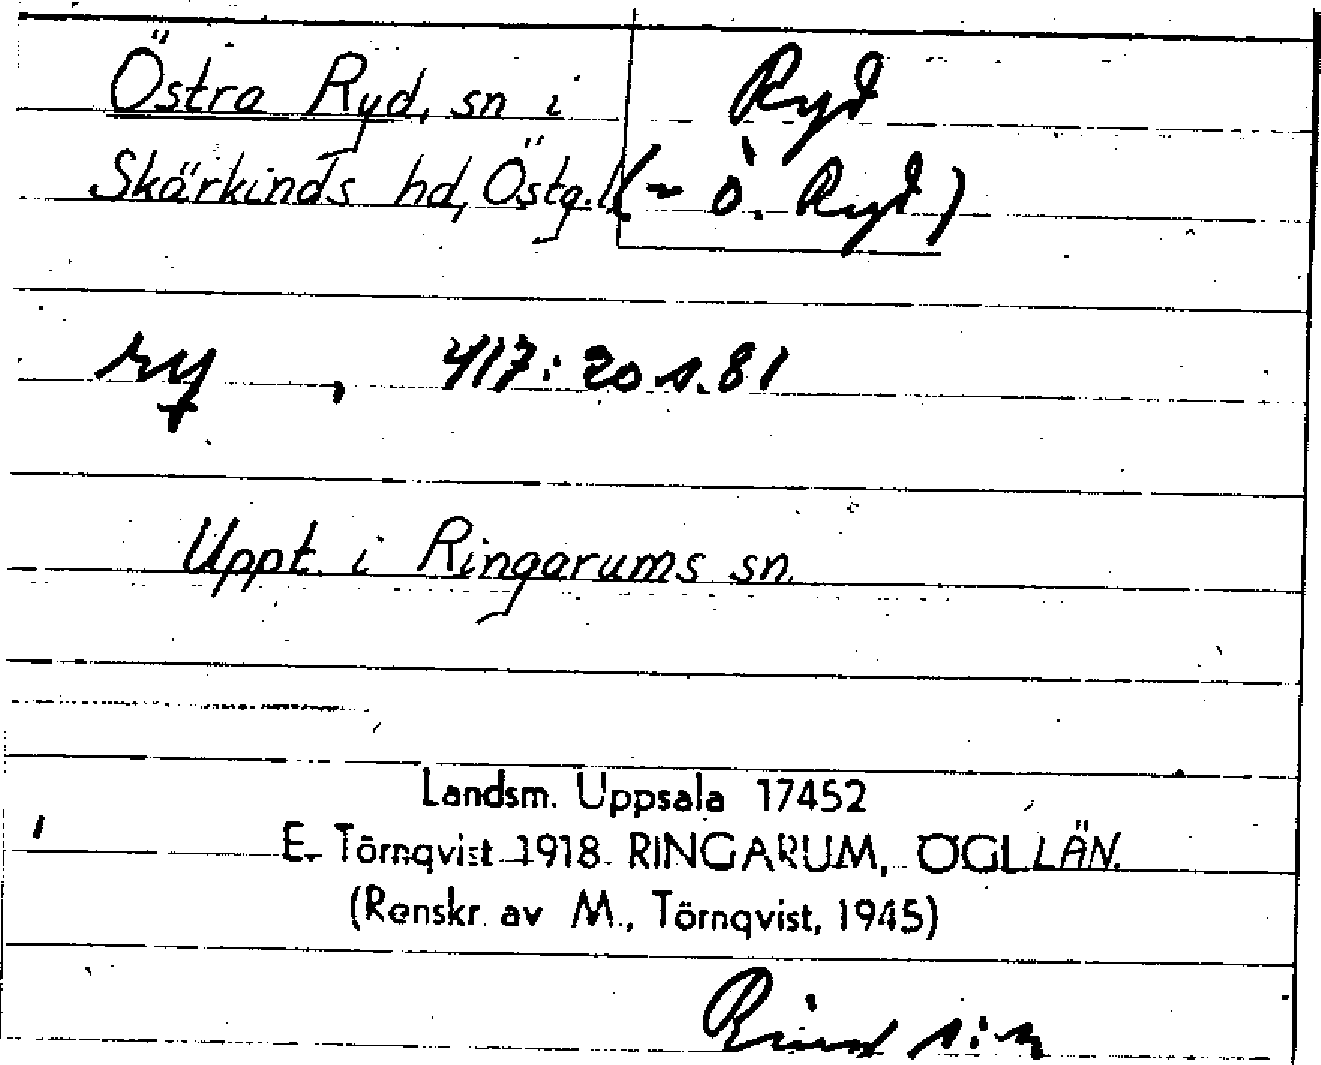 Östra Ryd, sn i
Skärkinds hd, Östg.l.
Ryd
(- Ö. Ryd)
ry , 417:20 s.81
Uppt. i Ringarums sn.
Landsm. Uppsala 17452
E. Törnqvist 1918 RINGARUM, ÖGL LÄN.
(Renskr. av M. Törnqvist, 1945)